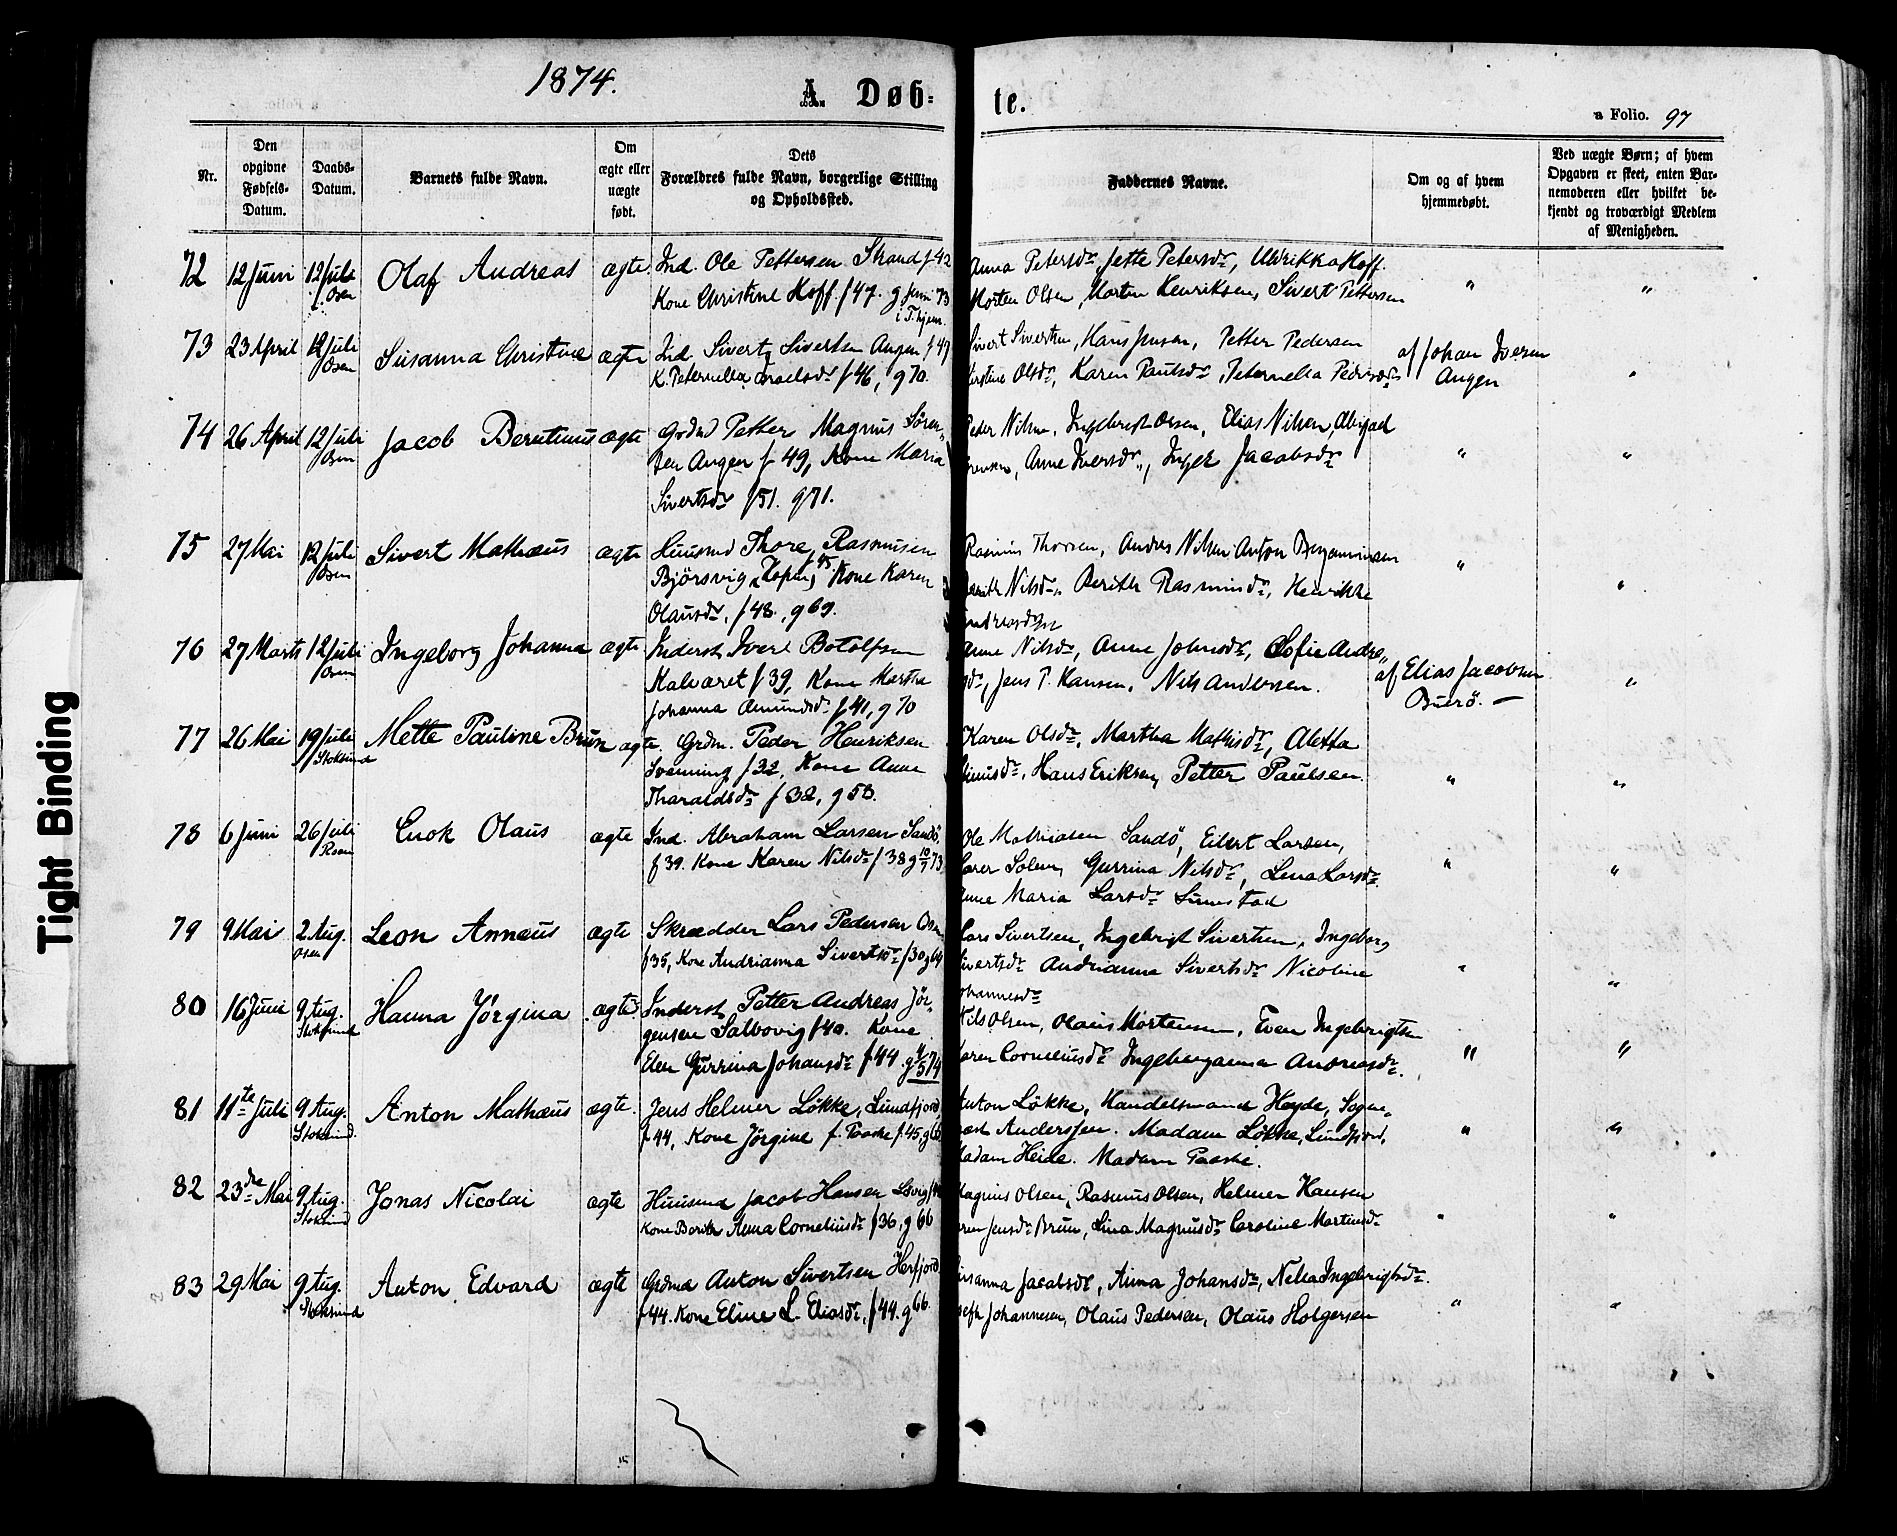 1874.
A. Døb=
te.
a Folio. 97
Nr.
Den opgivne Fødsels-Datum.
Daabs-Datum.
Barnets fulde Navn.
Om ægte eller uægte født.
Dets Forældres fulde Navn, borgerlige Stilling og Opholdssted.
Faddernes Navne.
Om og af hvem hjemmedøbt.
Ved uægte Børn; af hvem Opgaven er skeet, enten Barnemoderen eller hvilket bekjendt og troværdigt Medlem af Menigheden.
72 12 Juni 12 Juli Osen Olaf Andreas ægte
Ind. Ole Pettersen Strand f 42
Kone Christine Hoff. f 47. g Juni 73
i T.hjem.
Anna Petersdr Jette Petersdr, Uldrikka Hoff.
Morten Olsen, Morten Henriksen, Sivert Pettersen
" "
73 23 April 12 Juli Osen Susanna Christine ægte
Ind Sivert Sivertsen Angen f 47
K. Peternella f 46, g 70.
Sivert Sivertsen, Hans Jensen, Petter Pedersen
Olsdr, Karen Paulsdr, Peternella Pedersdr
af Johan Iversen
Angen
"
74 26 April 12 Juli Osen Jacob Berntinus ægte
Grdmd Petter Magnus Sören-
sen Angen f 49, Kone Maria
Sivertsdr f 51. g 71.
Peder Nilsen, Ingebrigt Olsen, Elias Nilsen, Abigael
Anne Iversdr, Inger Jacobsdr
" "
75 27 Mai 12 Juli Osen Sivert Mathæus ægte
Huusmd Thore Rasmusen
Björsvig, f 45. Kone Karen
Olausdr, f 48, g 69.
Rasmus Thoresen, Andras Nilsen Anton Benjaminsen
Nilsdr, Berith Rasmusdr, Henrikke
Andreasdtr
" "
76 27 Marts 12 Juli Osen Ingeborg Johanna ægte
Inderst Iver Botolfsen
Kalvaret f 39, Kone Martha
Johanna Amundsdr f 41, g 70
Anne Nilsdr, Anne Johnsdr, Sofie Andrea-
sdr, Jens P. Hansen, Nils Andersen.
af Elias Jacobsen
Buerö. —
"
77 26 Mai 19 Juli Stoksund Mette Pauline Brun ægte.
Grdm. Peder Henriksen
Svenning f 32, Kone Anne
Tharaldsdr f 32, g 53.
Karen Olsdr, Martha Mathisdr, Aletta
Hans Eriksen, Petter Paulsen.
" "
78 6 Juni 26 Juli Roan Enok Olaus ægte
Ind. Abraham Larsen Sandö,
f 39. Kone Karen Nilsdr f 38 g 10/7 73
Ole Mathiasen Sandö, Eilert Larsen,
Solem, Gurrina Nilsdr, Lena Larsdr
Anne Maria Larsdr Sumstad
" "
79 9 Mai 2 Aug. Osen Leon Annæus ægte
Skrædder Lars Pedersen Osen
f 35, Kone Andrianna Sivertsdr f 30 g 64
Lars Sivertsen, Ingebrigt Sivertsen, Ingeborg
Sivertsdr Andrianna Sivertsdr Nicoline
Johannesdr
" "
80 16 Juni 9 Aug. Stoksund Hanna Jörgina ægte
Inderst Petter Andreas Jör-
gensen Salbovig f 40. Kone
Elen Gurrina Johansdr f 44. g 4/5 74
Nils Olsen, Olaus Mortensen, Even Ingebrigtsen
Karen Corneliusdr Ingeborganna Andreasdr.
" "
81 11te Juli 9 Aug. Stoksund. Anton Mathæus ægte.
Jens Helmer Løkke, Lundfjord,
f 44, Kone Jörgine f. Paaske f 45, g 66
Anton Løkke, Handelsmand Heyde, Sogne-
præst Anderssen. Madam Løkke, Lundfjord,
Madam Heide. Madam Paaske.
" "
82 23de Mai 9 Aug. Stoksund Jonas Nicolai ægte
Huusmd Jacob Hansen
Kone Berith Anna Corneliusdr f 36, g 66
Magnus Olsen, Rasmus Olsen, Helmer Hansen
Jensdr Brun, Lina Magnusdr Caroline Martinsdr
" "
83 29 Mai 9 Aug. Stoksund Anton Edvard ægte
Grdmd Anton Sivertsen Herfjord
f 44. Kone Eline L. Eliasdr, f 44. g 66
Susanna Jacobsdr, Anna Johansdr, Nella Ingebrigtsdr.
Josefh Johannesen, Olaus Pedersen, Olaus Holgersen
" "
Tight Binding